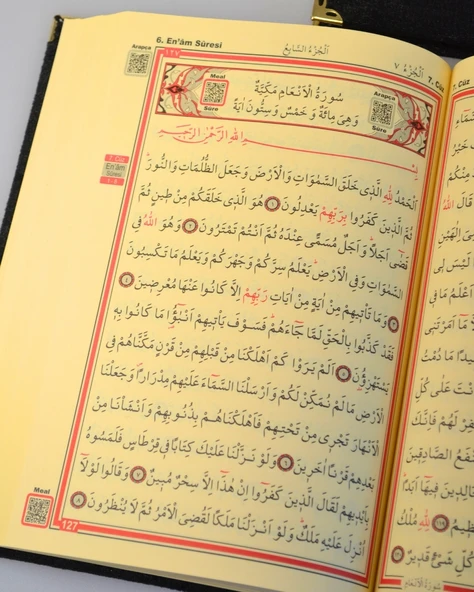 6. En'âm Sûresi
اَلْجُزْءُ السَّابِعُ
اَلْجُزْءُ ٧
7. Cüz
7. Cüz
Arapça
١٢٧
Meal
Sûre
سُورَةُ الْاَنْعَامِ مَكِّيَّةٌ
وَهِىَ مِائَةٌ وَخَمْسٌ وَسِتُّونَ اٰيَةً
Arapça
Sûre
بِسْمِ اللّٰهِ الرَّحْمٰنِ الرَّحٖيمِ
7. Cüz
En'âm
Sûresi
اَلْحَمْدُ لِلّٰهِ الَّذٖى خَلَقَ السَّمٰوَاتِ وَالْاَرْضَ وَجَعَلَ الظُّلُمَاتِ وَالنُّورَ
ثُمَّ الَّذٖينَ كَفَرُوا بِرَبِّهِمْ يَعْدِلُونَ ١ هُوَ الَّذٖى خَلَقَكُمْ مِنْ طٖينٍ ثُمَّ
قَضٰٓى اَجَلًا وَاَجَلٌ مُسَمًّى عِنْدَهُ ثُمَّ اَنْتُمْ تَمْتَرُونَ ٢ وَهُوَ اللّٰهُ فِى
السَّمٰوَاتِ وَفِى الْاَرْضِ يَعْلَمُ سِرَّكُمْ وَجَهْرَكُمْ وَيَعْلَمُ مَا تَكْسِبُونَ
٣ وَمَا تَاْتٖيهِمْ مِنْ اٰيَةٍ مِنْ اٰيَاتِ رَبِّهِمْ اِلَّا كَانُوا عَنْهَا مُعْرِضٖينَ ٤
فَقَدْ كَذَّبُوا بِالْحَقِّ لَمَّا جَٓاءَهُمْ فَسَوْفَ يَاْتٖيهِمْ اَنْبٰٓؤُا مَا كَانُوا بِهٖ
يَسْتَهْزِؤُنَ ٥ اَلَمْ يَرَوْا كَمْ اَهْلَكْنَا مِنْ قَبْلِهِمْ مِنْ قَرْنٍ مَكَّنَّاهُمْ فِى
الْاَرْضِ مَا لَمْ نُمَكِّنْ لَكُمْ وَاَرْسَلْنَا السَّمَٓاءَ عَلَيْهِمْ مِدْرَارًا وَجَعَلْنَا
الْاَنْهَارَ تَجْرٖى مِنْ تَحْتِهِمْ فَاَهْلَكْنَاهُمْ بِذُنُوبِهِمْ وَاَنْشَاْنَا مِنْ
بَعْدِهِمْ قَرْنًا اٰخَرٖينَ ٦ وَلَوْ نَزَّلْنَا عَلَيْكَ كِتَابًا فٖى قِرْطَاسٍ فَلَمَسُوهُ
بِاَيْدٖيهِمْ لَقَالَ الَّذٖينَ كَفَرُٓوا اِنْ هٰذَٓا اِلَّا سِحْرٌ مُبٖينٌ ٧ وَقَالُوا لَوْلَٓا
اُنْزِلَ عَلَيْهِ مَلَكٌ وَلَوْ اَنْزَلْنَا مَلَكًا لَقُضِىَ الْاَمْرُ ثُمَّ لَا يُنْظَرُونَ ٨
Meal
127
قَالَ اللّٰهُ
الصَّادِقٖينَ
لِلّٰهِ مُلْكُ
كُلِّ شَىْءٍ قَدٖيرٌ
سُورَةُ الْاَنْعَامِ